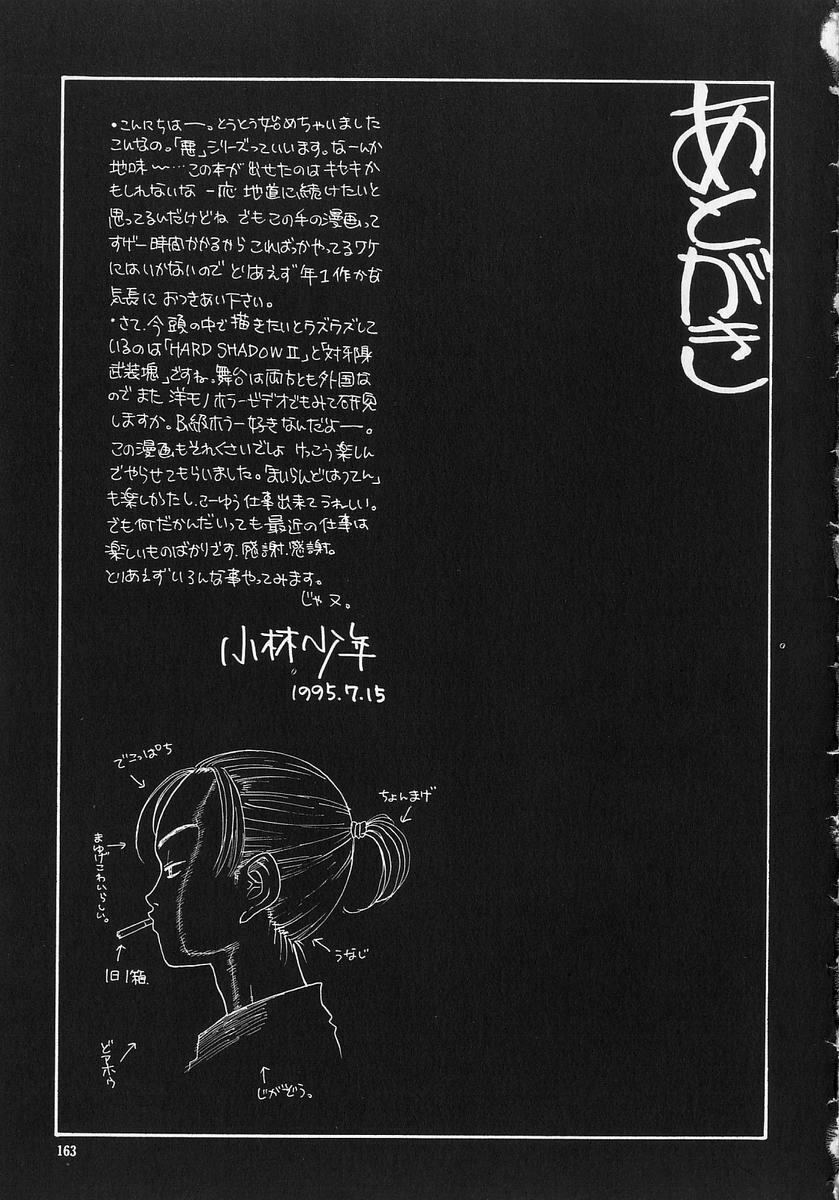 あとがき
・こんにちはー。とうとう始めちゃいました
こんなの。「悪」シリーズっていいます。なーんか
地味〜…この本が出せたのはキセキか
もしれないな 一応 地道に続けたいと
思ってるんだけどね でもこの手の漫画って
すげー時間かかるから こればっかやってるワケ
にはいかないので とりあえず年1作かな
気長に おつきあい下さい。
・さて、今頭の中で描きたいとラズラズして
いるのは「HARD SHADOW II」と「対邪鬼
武装堀」ですね。舞台は両方とも外国な
のでまた 洋モノホラービデオでもみて研究
しますか。B級ホラー好きなんだよー。
この漫画もそれくさいでしょ けっこう楽しん
でやらせてもらいました。「まいらんどはつでん」
も楽しかったし、こーゆう仕事出来てうれしい。
でも何だかんだいっても最近の仕事は
楽しいものばかりです。感謝、感謝。
とりあえずいろんな事やってみます。
じゃ又。
小林少年
1995.7.15
でこっぱち
ちょんまげ
まゆげこわいらしい。
うなじ
1日1箱
どアホゥ
じがぞう。
163